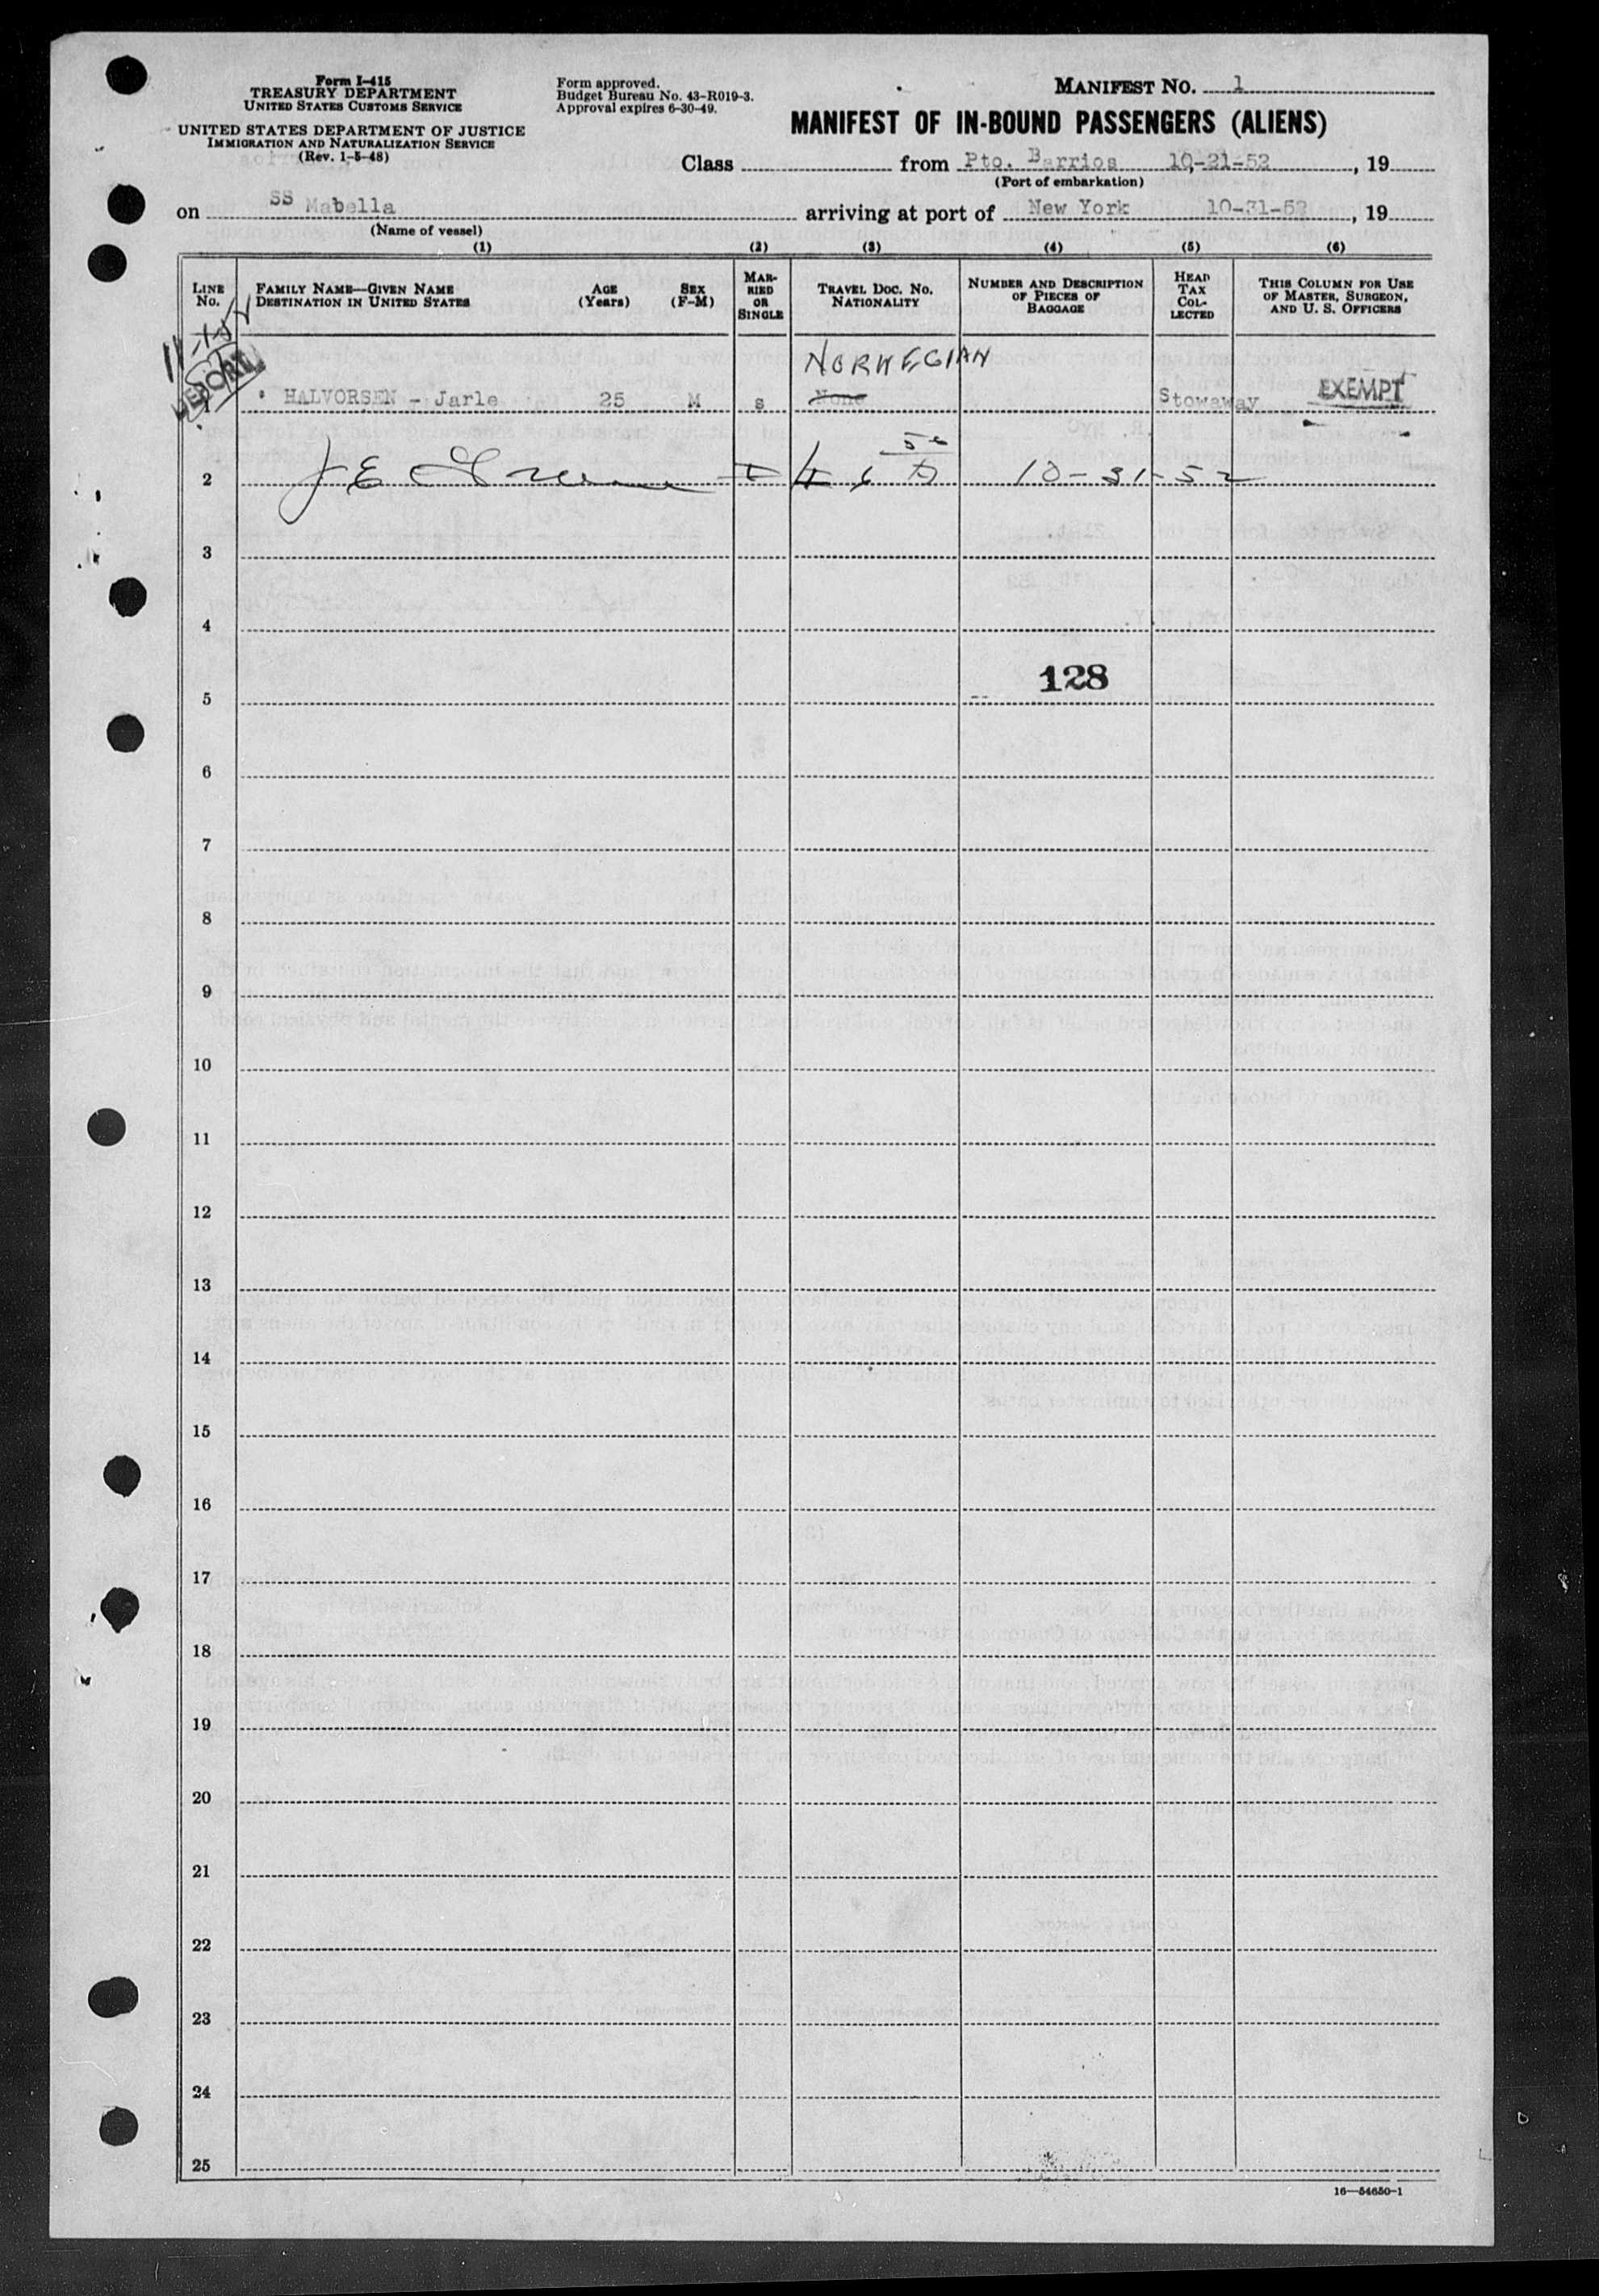 Form I-415
TREASURY DEPARTMENT
UNITED STATES CUSTOMS SERVICE
UNITED STATES DEPARTMENT OF JUSTICE
IMMIGRATION AND NATURALIZATION SERVICE
(Rev. 1-5-48)
Form approved.
Budget Bureau No. 43-R019-3.
Approval expires 6-30-49.
MANIFEST NO. 1
MANIFEST OF IN-BOUND PASSENGERS (ALIENS)
Class from Pto. Barrios 10-21-52, 19
(Port of embarkation)
on SS Mabella arriving at port of New York 10-31-52, 19
(Name of vessel)
(1) (2) (3) (4) (5) (6)
LINE No.
FAMILY NAME—GIVEN NAME
DESTINATION IN UNITED STATES
AGE (Years)
SEX (F-M)
MARRIED OR SINGLE
TRAVEL DOC. NO.
NATIONALITY
NUMBER AND DESCRIPTION OF PIECES OF BAGGAGE
HEAD TAX COLLECTED
THIS COLUMN FOR USE OF MASTER, SURGEON, AND U. S. OFFICERS
NORWEGIAN
1 HALVORSEN - Jarle 25 M s None Stowaway EXEMPT
2 10-31-52
3
4
128
5
6
7
8
9
10
11
12
13
14
15
16
17
18
19
20
21
22
23
24
25
16—54650-1